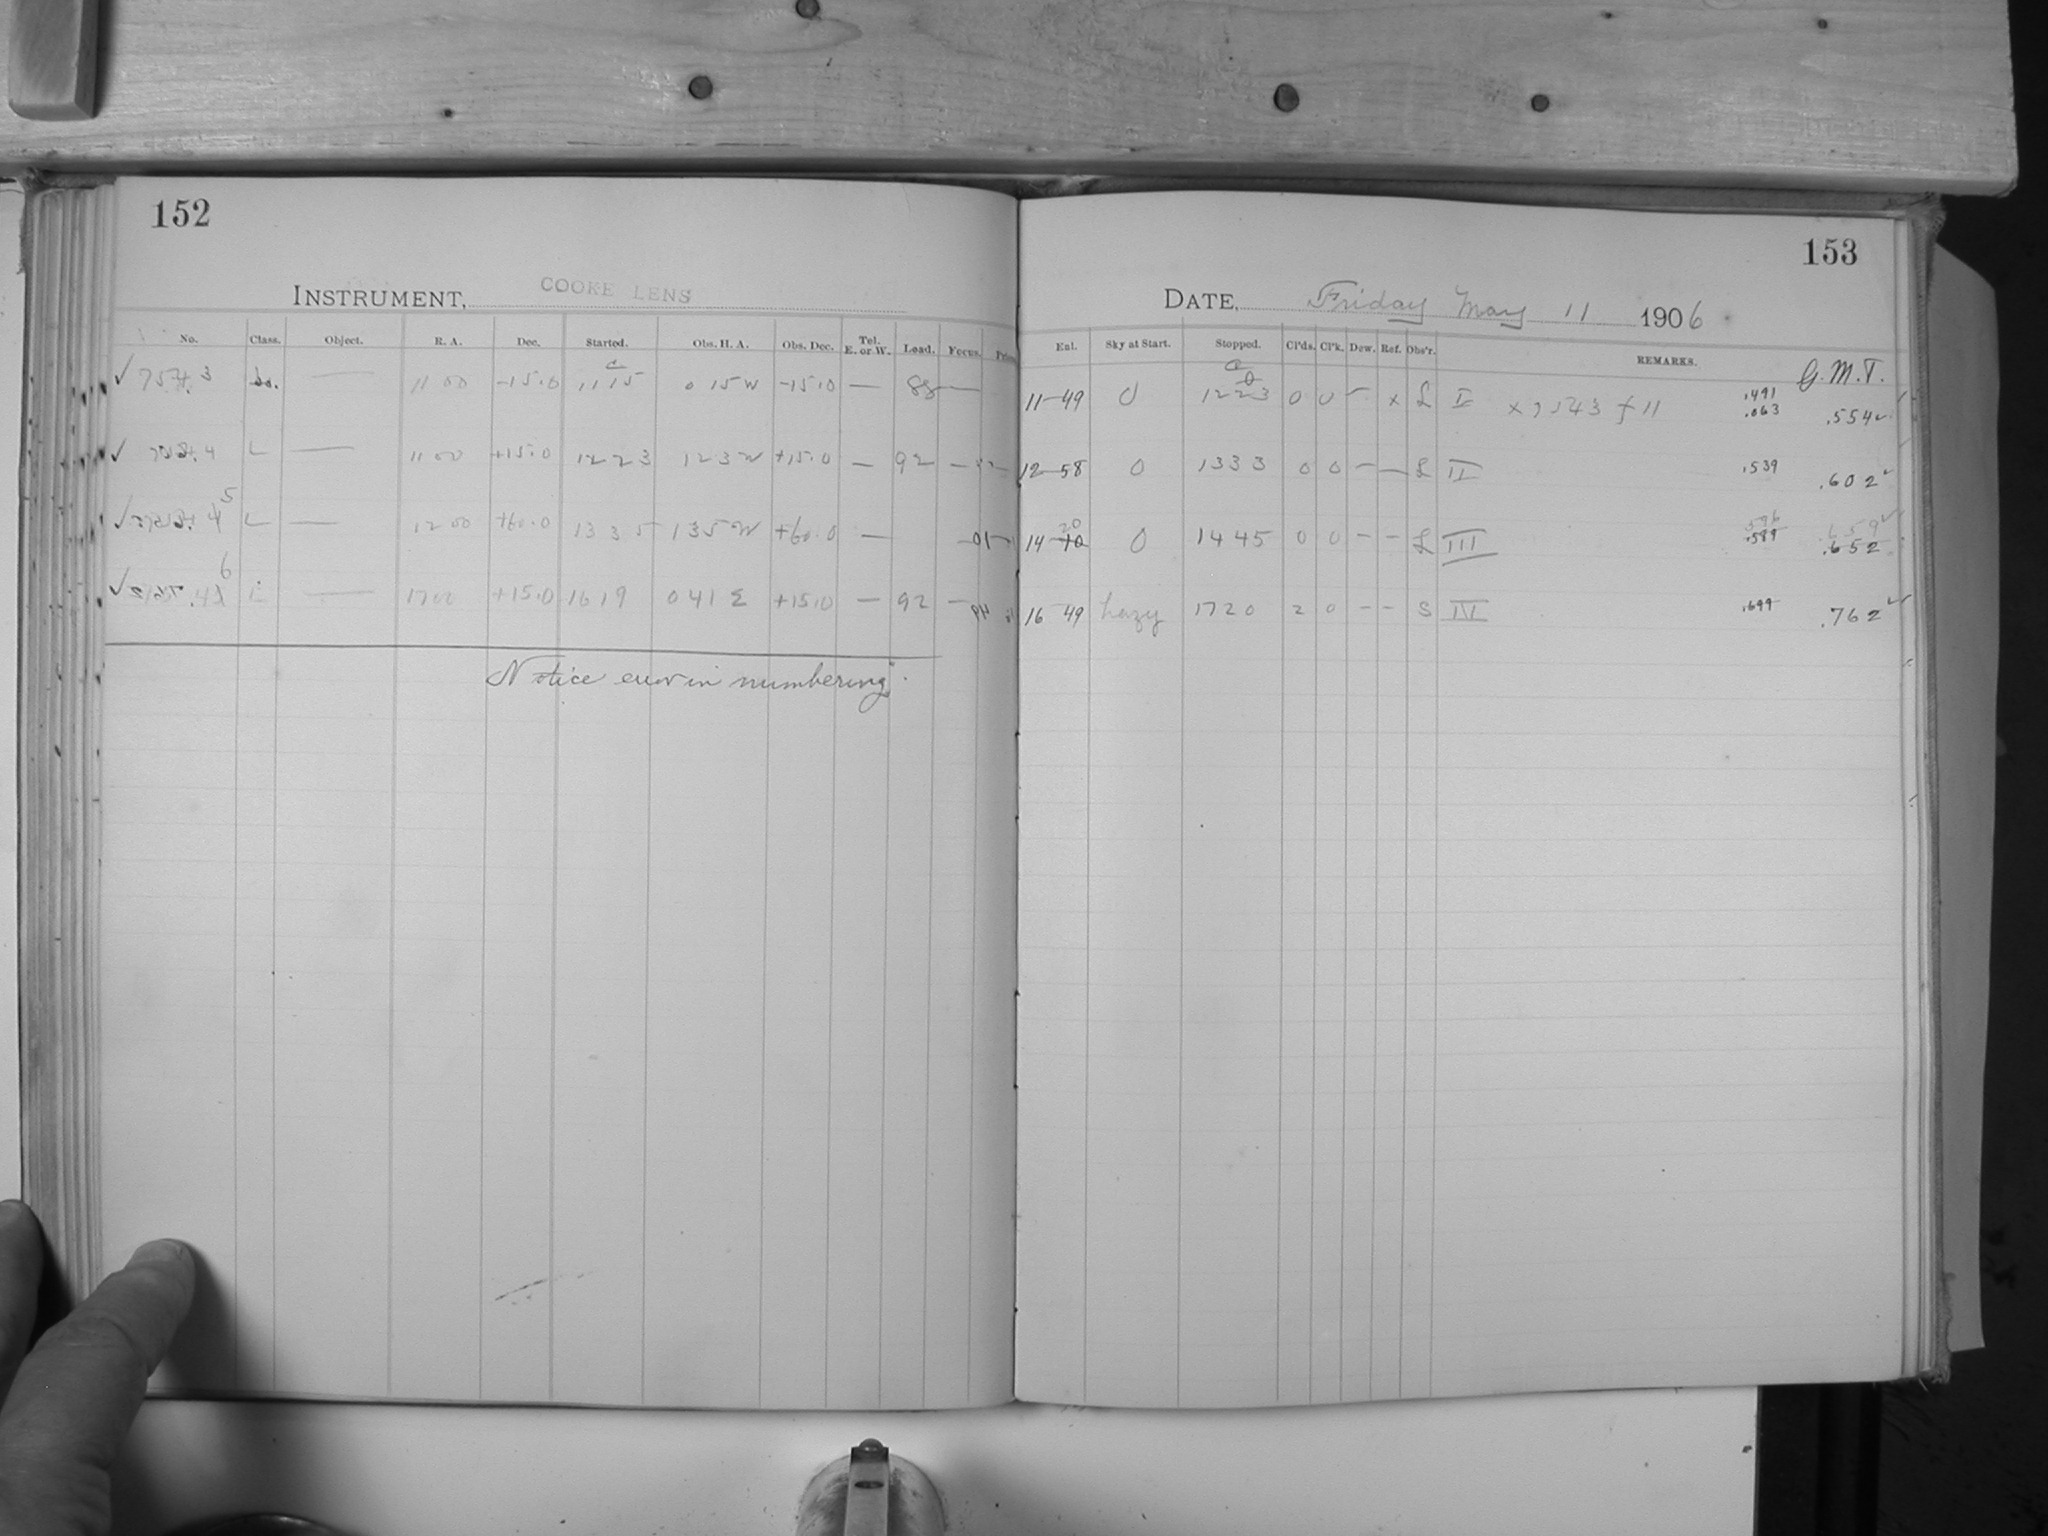 152
INSTRUMENT, COOKE LENS
No. Class. Object. R. A. Dec. Started. Obs. H. A. Obs. Dec. Tel. E. or W. Load. Focus.
✓ — 11 00 -15.0 11 15 0 15 W -15.0 — 88 —
✓ L — 11 00 +15.0 12 23 1 23 W +15.0 — 92 —
5
✓ L — 12 00 +60.0 13 35 1 35 W +60.0 —
6
✓ — 17 00 +15.0 16 19 0 41 E +15.0 — 92 —
Notice error in numbering.
153
DATE, Friday May 11 1906
Enl. Sky at Start. Stopped. Cl'ds. Cl'k. Dew. Ref. Obs'r. REMARKS. G.M.T.
11-49 0 12 23 0 0 - x L II x 7543 f 11 .491 .063 .554 ✓
12-58 0 13 33 0 0 - - L II .539 .602 ✓
20 .596 .659 ✓
14-10 0 14 45 0 0 - - L III .589 .652
16 49 hazy 17 20 2 0 - - S IV .699 .762 ✓